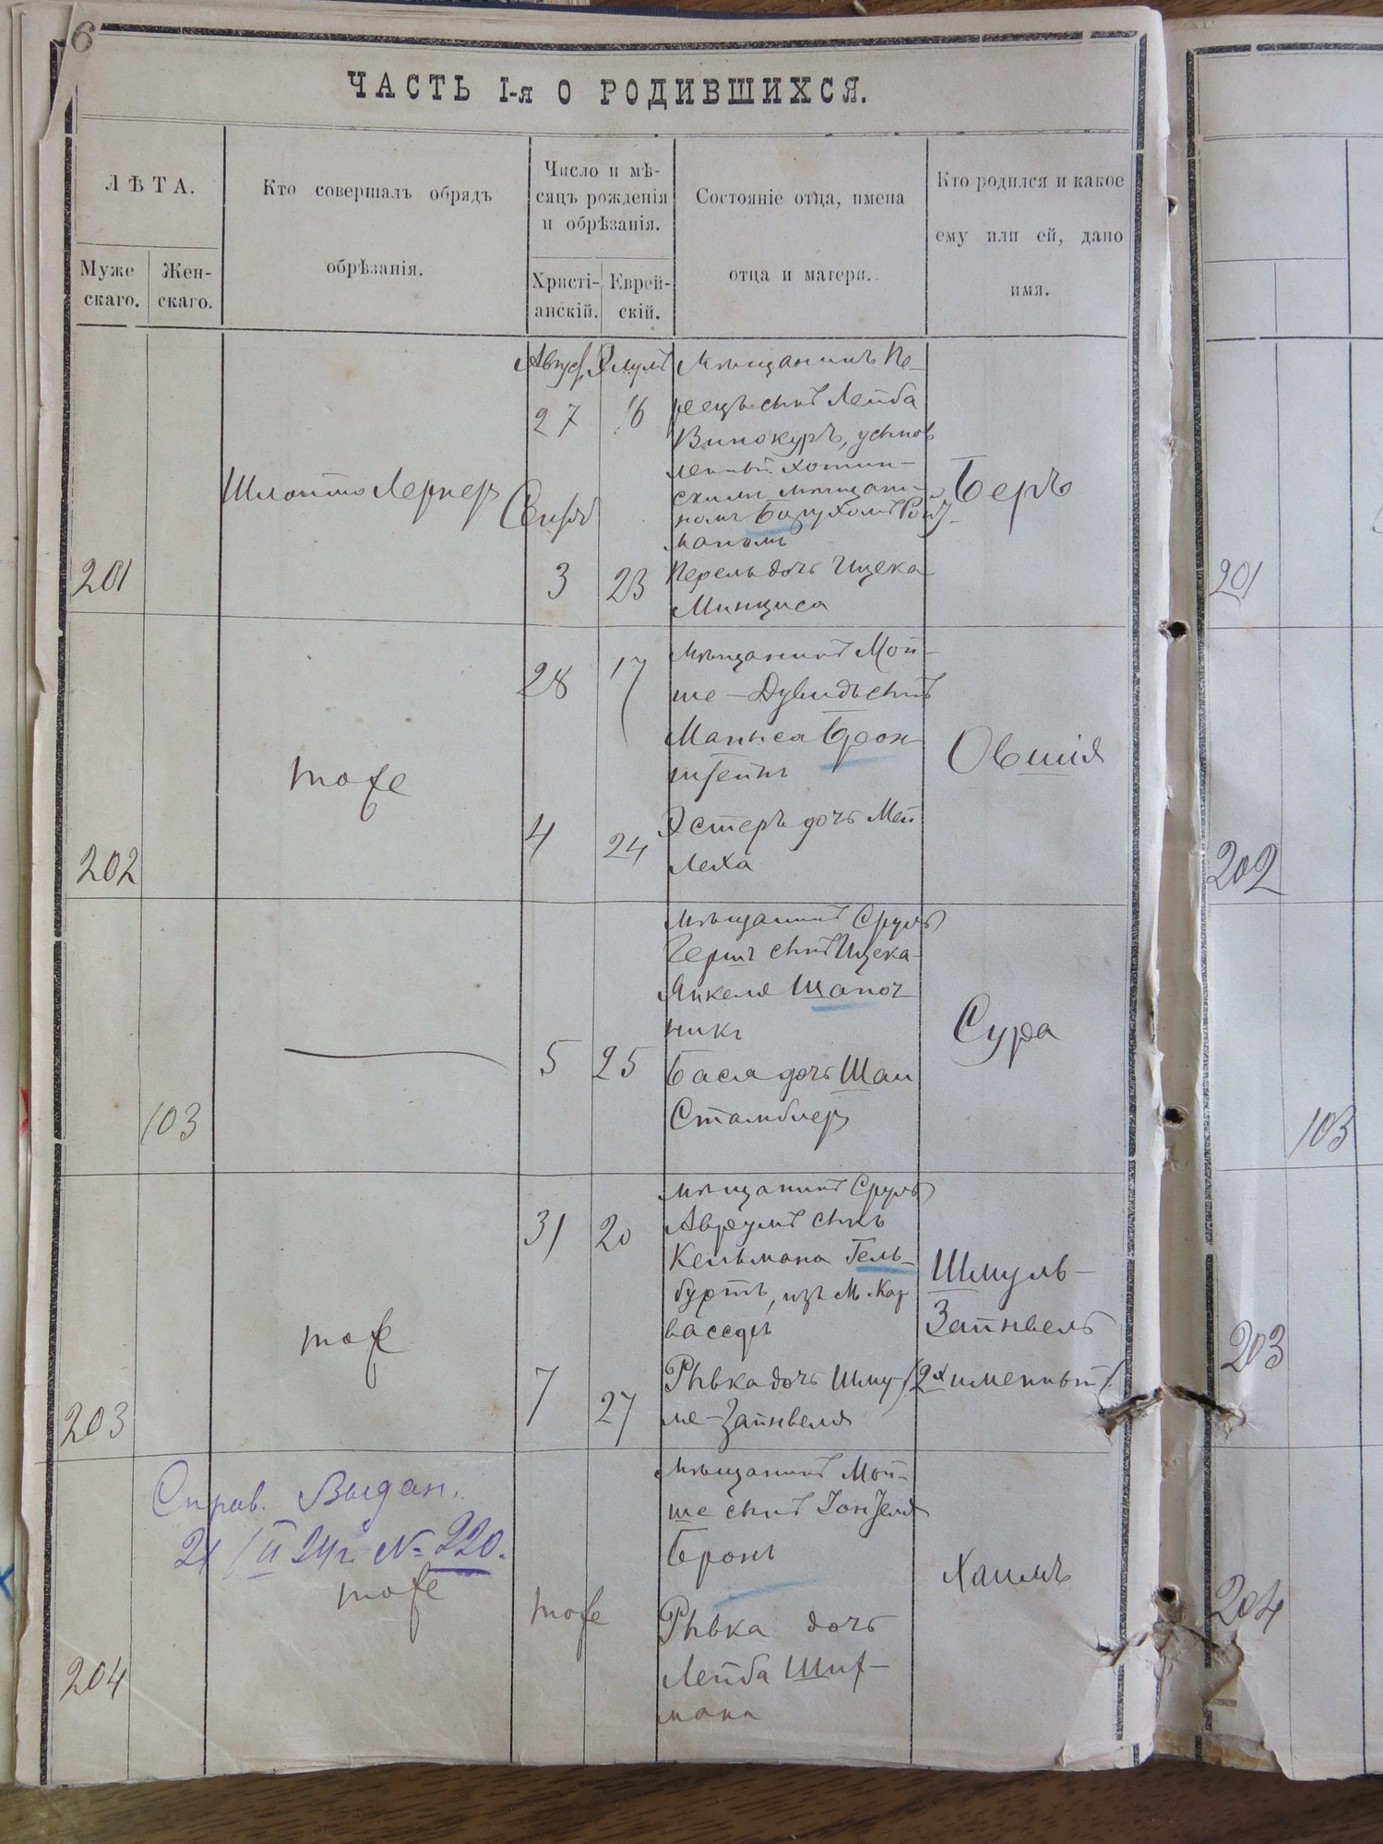 6
ЧАСТЬ I-я О РОДИВШИХСЯ.
ЛѢТА.
Муже
скаго.
Жен-
скаго.
Кто совершалъ обрядъ
обрѣзанія.
Число и мѣ-
сяцъ рожденія
и обрѣзанія.
Христі-
анскій.
Еврей-
скій.
Состояніе отца, имена
отца и матери.
Кто родился и какое
ему или ей, дано
имя.
201
Шлойто Лернеръ
27
16
3
23
Мѣщанинъ Пе-
рецъ сынъ Лейба
Винокуръ, усынов
ленный хотин-
скимъ мѣщани-
номъ Барухомъ
маномъ
Перель дочь Ицека
Минциса
Беръ
201
202
тоже
28
17
4
24
Мѣщанинъ Мой-
ше-Дувидъ сынъ
Маныса Брон
штейнъ
Эстеръ дочь Мей
леха
Овшія
202
103
5
25
Мѣщанинъ Сруль
Гершъ сынъ Ицека
Янкеля Шапоч
никъ
Бася дочь Шаи
Стамблеръ
Сура
103
203
тоже
31
20
7
27
Мѣщанинъ Сруль
Аврумъ сынъ
Кельмана Гель-
буртъ, изъ м. Кал
Рывка дочь Шму
ле-Зайнвеля
Шмуль-
Зайнвель
(2х именный)
203
204
Справ. Выдан.
21/II 24г. № 220.
тоже
тоже
Мѣщанинъ Мой-
ше сынъ Зонзеля
Бронъ
Рывка дочь
Лейба Шиф-
мана
Хаимъ
204